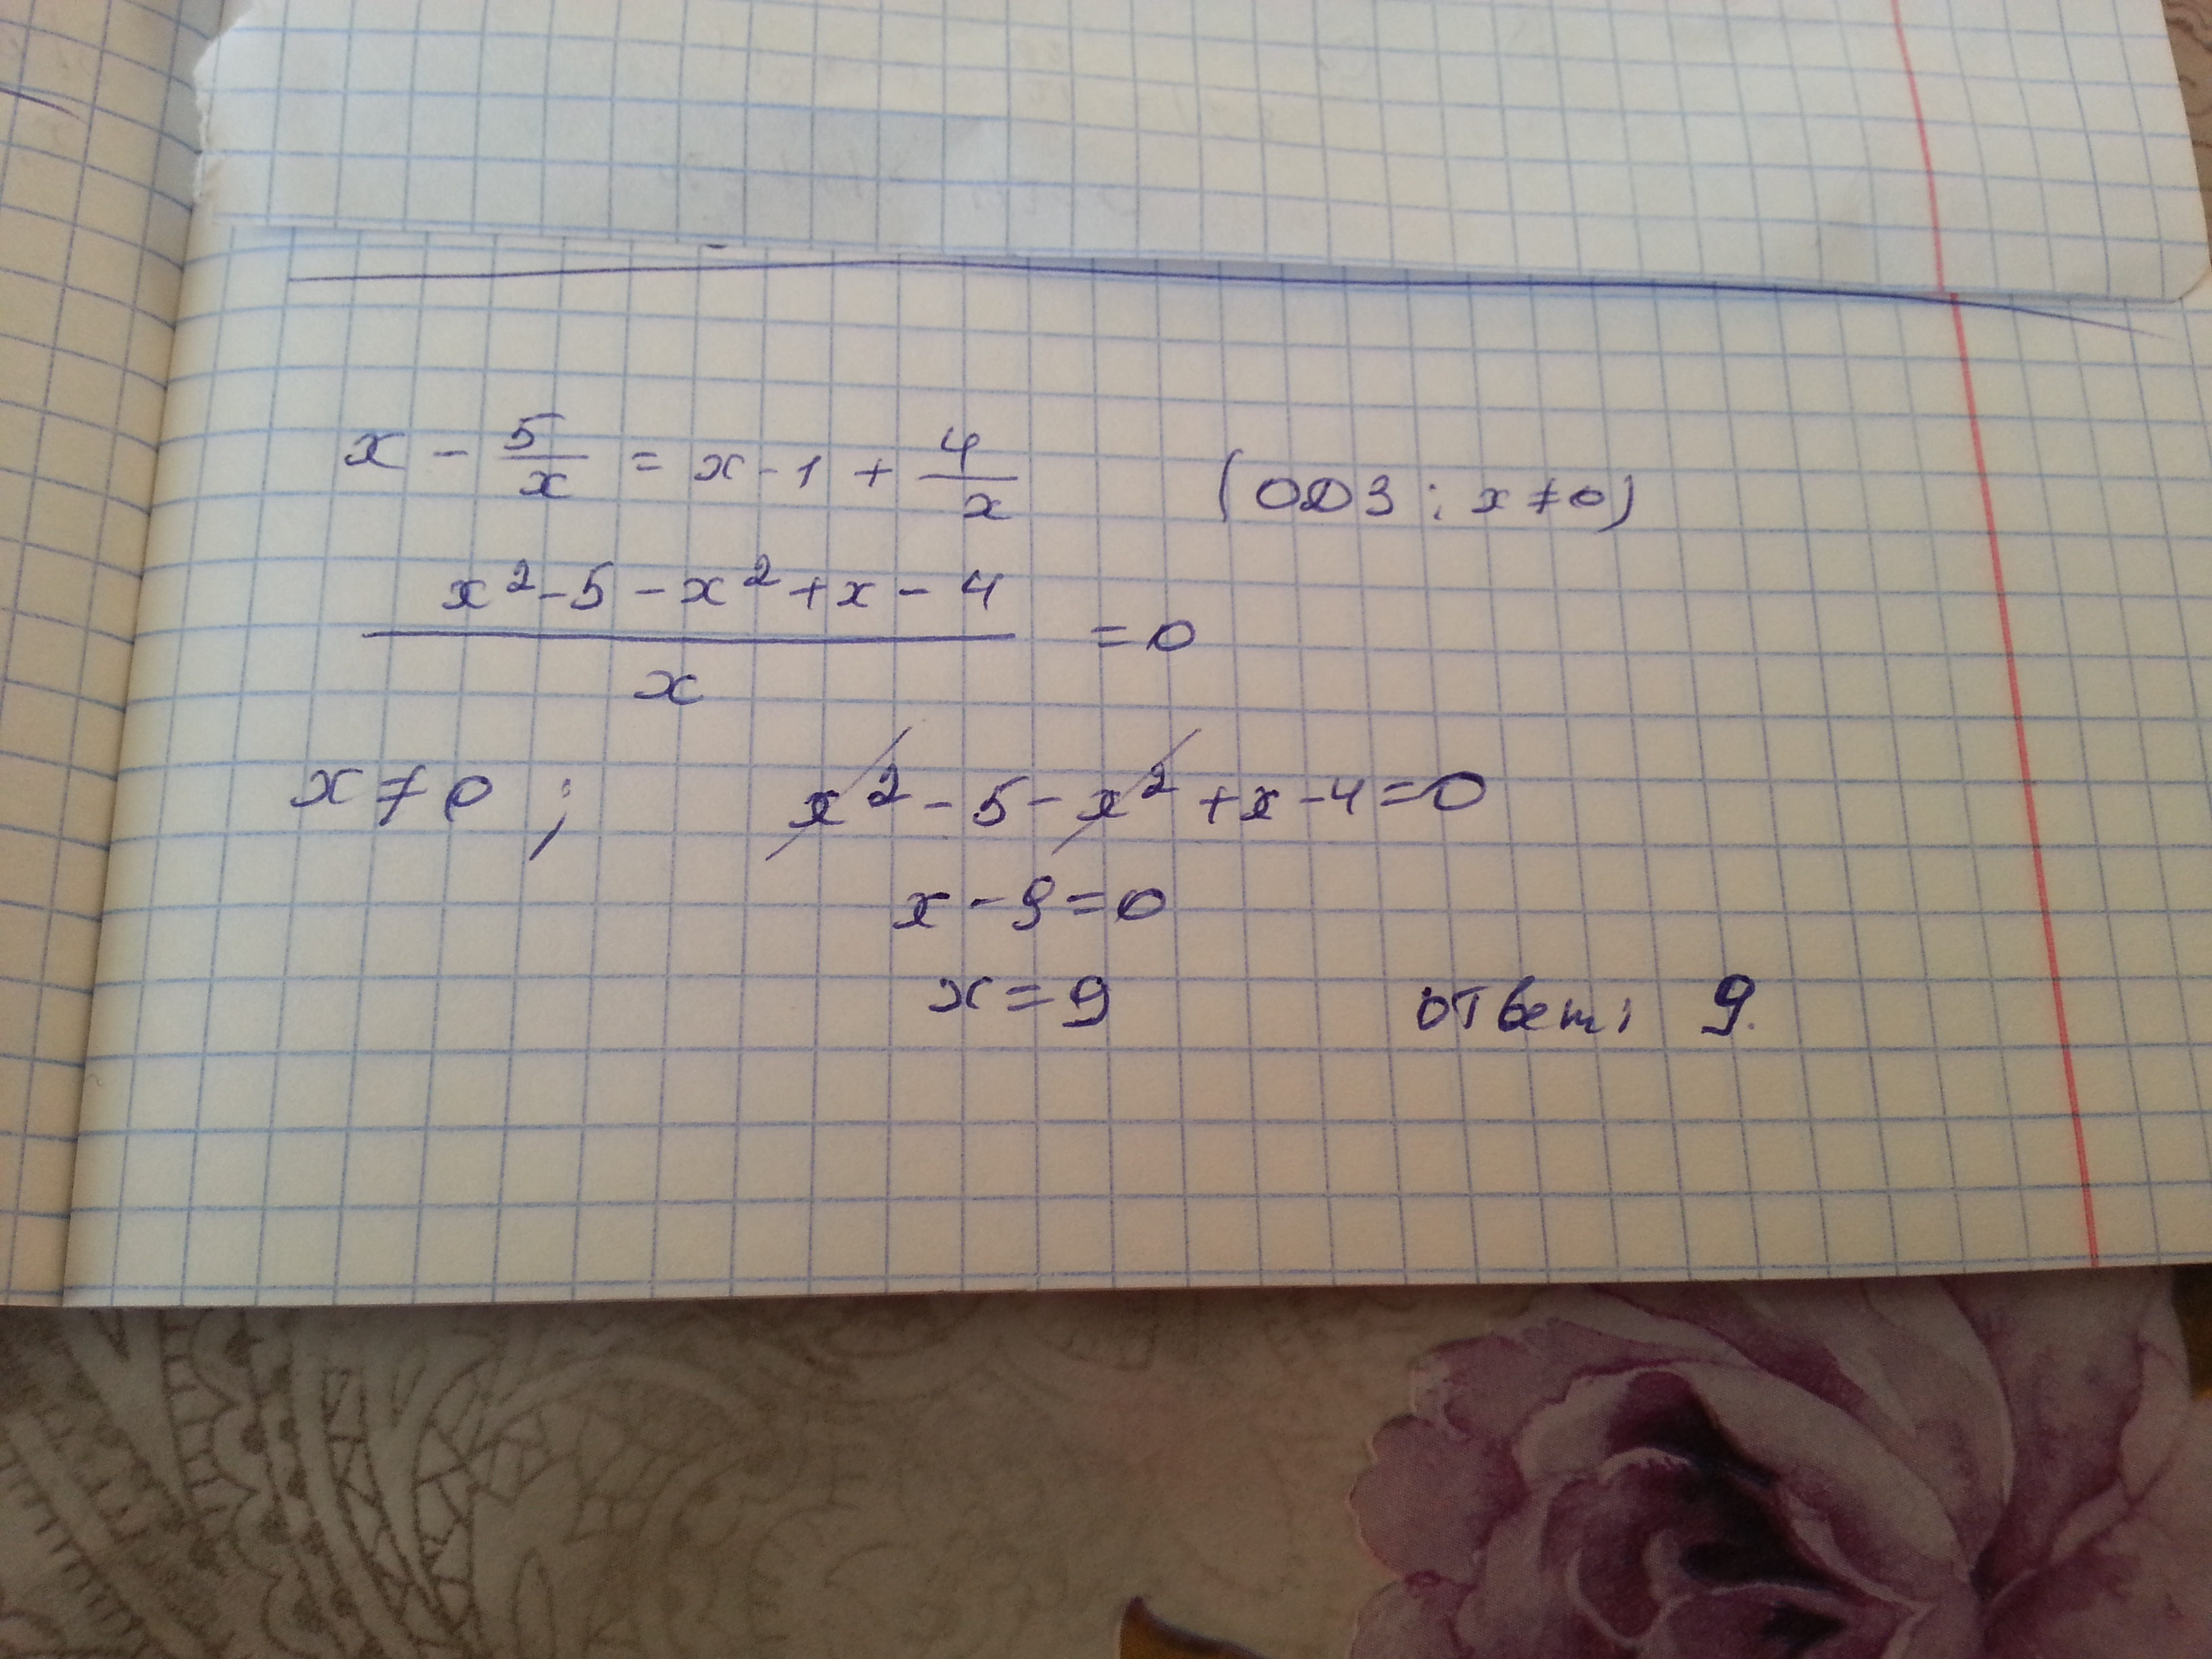 x - 5/x = x - 1 + 4/x (ОДЗ: x ≠ 0)
(x² - 5 - x² + x - 4)/x = 0
x ≠ 0; x² - 5 - x² + x - 4 = 0
x - 9 = 0
x = 9 ответ: 9.